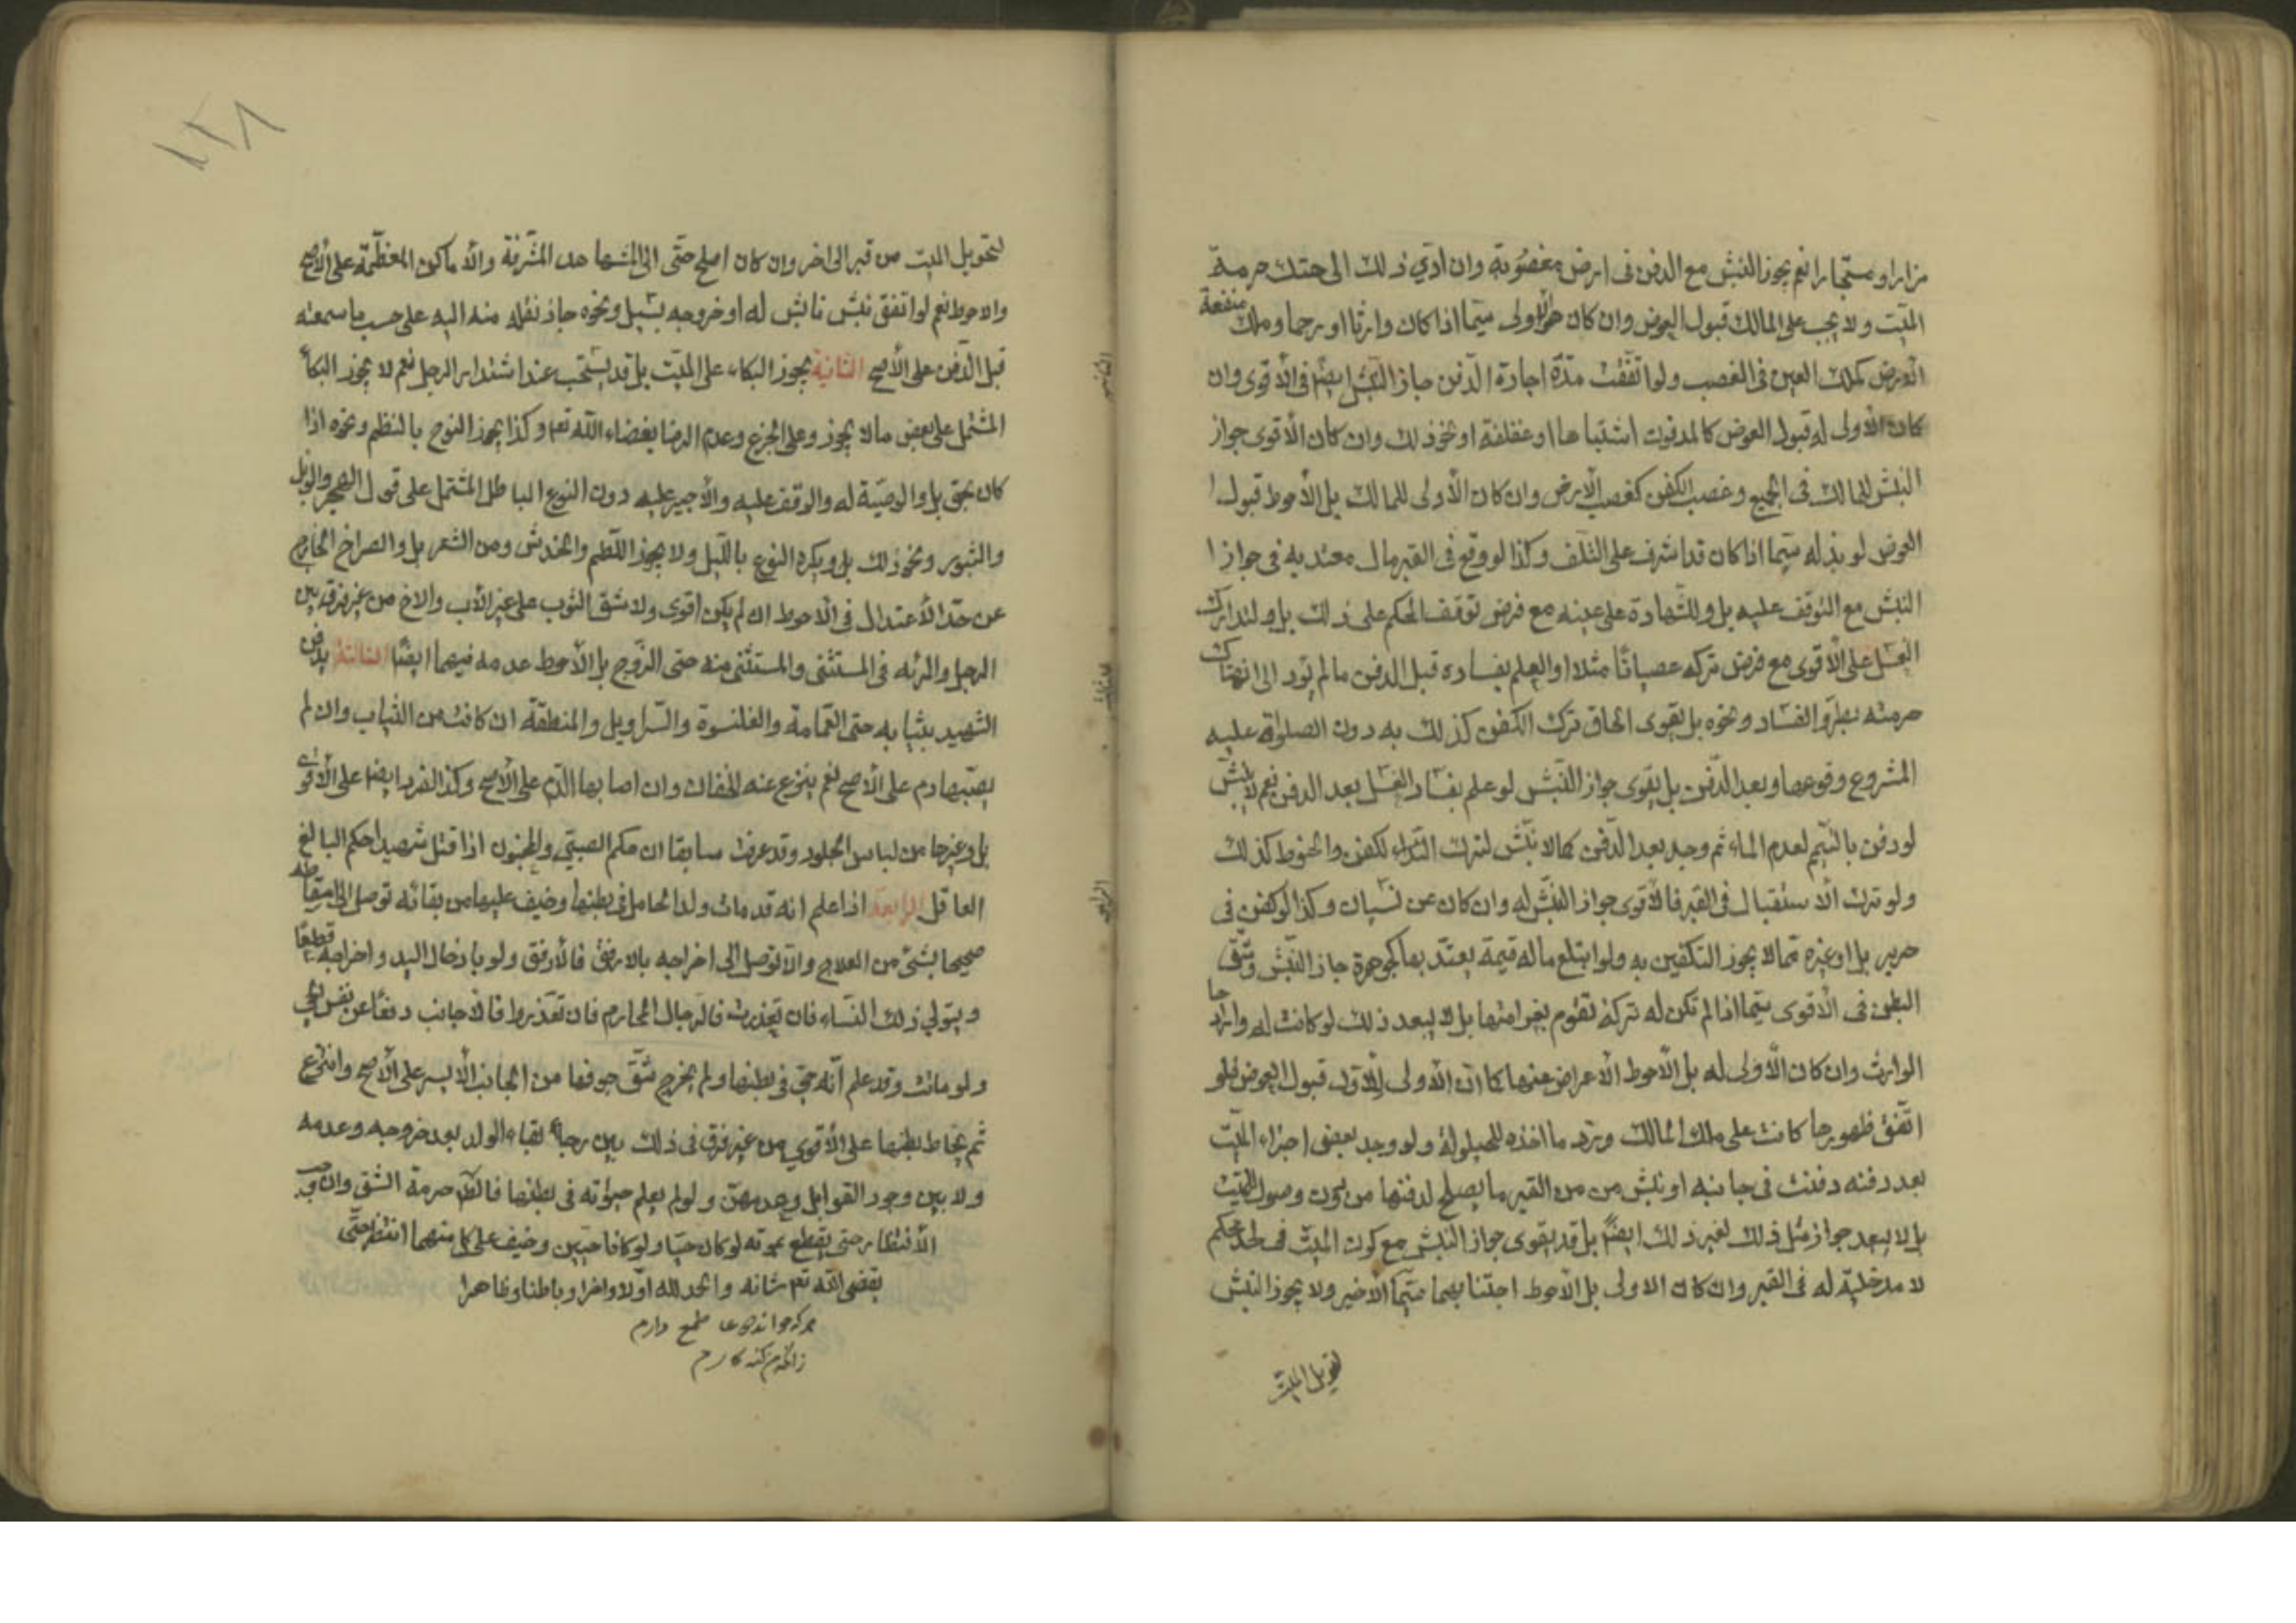 مزارا ومستجارا نعم يجوز النبش مع الدفن فى ارض مغصوبة وان ادّي ذلك الى هتك حرمة
الميّت ولا يجب على المالك قبول العوض وان كان هو الاولى سيّما اذا كان وارثا او رحما وملك منفعة
الارض كملك العين فى الغصب ولو اتفقت مدّة اجارة الدفن جاز النبش ايضًا فى الاقوى وان
كان الاولى له قبول العوض كالمدفون اشتباها او غفلة او نحو ذلك وان كان الاقوى جواز
النبش للمالك فى الجميع وغصب الكفن كغصب الارض وان كان الأولى للمالك بل الأحوط قبول
العوض لو بذله سيّما اذا كان قد اشرف على التلف وكذا لو وقع فى القبر مال معتد به فى جواز
النبش مع التوقف عليه بل وللشهادة على عينه مع فرض توقف الحكم على ذلك بل ولتدارك
الغسل على الأقوى مع فرض تركه عصيانًا مثلا او العلم بفساده قبل الدفن ما لم يؤد الى انهتاك
حرمته بطروّ الفساد ونحوه بل يقوى الحاق ترك الكفن كذلك به دون الصلوة عليه
المشروع وقوعها بعد الدّفن بل يقوى جواز النّبش لو علم بفساد الغسل بعد الدفن نعم لا ينبش
لو دفن بالتيمم لعدم الماء ثم وجد بعد الدّفن كما لا ينبش لترك التدارك لكفن والحنوط كذلك
ولو ترك الاستقبال فى القبر فالاقوى جواز النبش له وان كان عن نسيان وكذا لو كفن فى
حرير بل او غيره ممّا لا يجوز التكفين به ولو ابتلع ماله قيمة يعتدّ بها كجوهرة جاز النّبش وشقّ
البطن فى الاقوى سيّما اذا لم تكن له تركة تقوم بغرامتها بل لا يبعد ذلك لو كانت له وارادها
الوارث وان كان الأولى له بل الأحوط الأعراض عنها كما ان الأولى للأول قبول العوض فلو
اتّفق ظهورها كانت على ملك المالك ويرد ما اخذه للحيلولة ولو وجد بعض اجزاء الميّت
بعد دفنه دفنت فى جانبه او نبش من من القبر ما يصلح لدفنها من دون وصول للميّت
بل لا يبعد جواز مثل ذلك لغير ذلك ايضًا بل قد يقوى جواز النبش مع كون الميت فى لحد محكم
لا مدخلية له فى القبر وان كان الاولى بل الأحوط اجتنابهما سيّما الأخير ولا يجوز النبش
لتحويل الميّت
١٢٨
لتحويل الميت من قبر الى اخر وان كان اصلح حتى الى المشاهد المشرفة والاماكن المعظّمة على الأصح
والاحوط نعم لو اتفق نبش نابش له او خروجه بسيل ونحوه جاز نقله منه اليه على حسب ما سمعته
قبل الدّفن على الأصح الثانية يجوز البكاء على الميّت بل قد يستحب عند اشتداد الوجل نعم لا يجوز البكاء
المشتمل على بعض ما لا يجوز وعلى الجزع وعدم الرضا بقضاء الله تعم وكذا يجوز النوح بالنظم ونحوه اذا
كان بحق بل والوصيّة له والوقف عليه والأجير عليه دون النوح الباطل المشتمل على قول الهجر والويل
والثبور ونحو ذلك بل ويكره النوح بالليل ولا يجوز اللّطم والخدش وجز الشعر بل والصراخ الخارج
عن حدّ الأعتدال فى الاحوط ان لم يكن اقوى ولا شق الثوب على غير الأب والاخ من غير فرق بين
الرجل والمرئه فى المستثنى والمستثنى منه حتى الزّوج بل الأحوط عدمه فيهما ايضًا الثالثة يدفن
الشهيد بثيابه حتى العمامة والقلنسوة والسّراويل والمنطقة ان كانت من الثياب وان لم
يصبها دم على الأصح نعم ينزع عنه الخفان وان اصابها الدّم على الأصح وكذا الفرو ايضا على الأقوى
بل وغيرها من لباس الجلود وقد عرفت سابقا ان حكم الصبيّ والمجنون اذا قتل شهيدا حكم البالغ
العاقل الرابعة اذا علم انه قد مات ولد الحامل فى بطنها وخيف عليها من بقائه توصل الى اسقاطه
صحيحا بشئ من العلاج والا توصل الى اخراجه بالارفق فالأرفق ولو بادخال اليد واخراجه قطعًا
ويتولى ذلك النساء فان تعذرت فالرجال المحارم فان تعذروا فالأجانب دفعًا عن نفس الحي
ولو ماتت وقد علم انّه حيّ فى بطنها ولم يخرج شقّ جوفها من الجانب الأيسر على الأصح وانتزع
ثم يخاط بطنها على الأقوى من غير فرق فى ذلك بين رجاء بقاء الولد بعد خروجه وعدمه
ولا بين وجود القوابل وعدمهنّ ولو لم يعلم حيوته فى بطنها فالظّ حرمة الشق والاوجب
الأنتظار حتى يقطع بموته لو كان حيّا ولو كانا حيّين وخيف على كل منهما انتظر حتّى
يقضى الله تعم شانه والحمد لله اوّلا واخرا وباطنا وظاهرا
هر که خواند دعا طمع دارم
زانکه من بنده گنه کارم